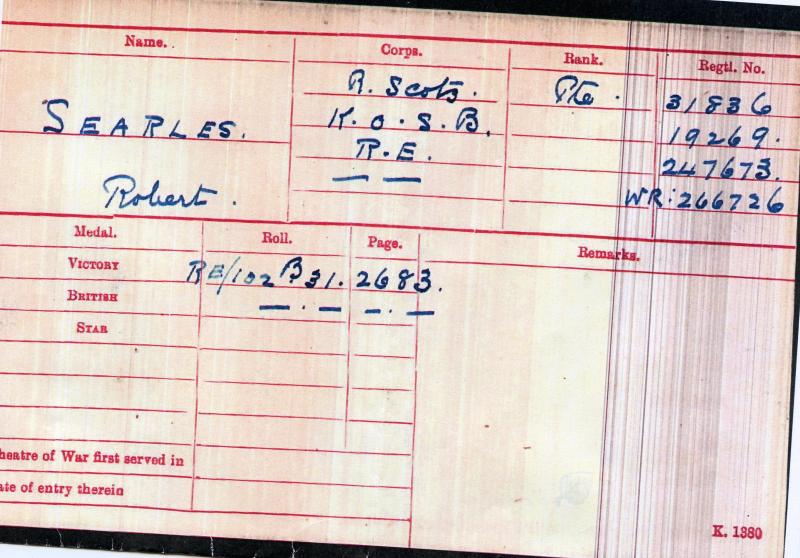 Name. Corps. Rank. Regtl. No.
SEARLES. R. Scots. Pte. 31836
K.O.S.B. 19269.
R.E. 247673.
Robert. — — WR:266726
Medal. Roll. Page. Remarks.
VICTORY RE/102 B 31. 2683.
BRITISH — . — — . —
STAR
heatre of War first served in
ate of entry therein
K. 1380